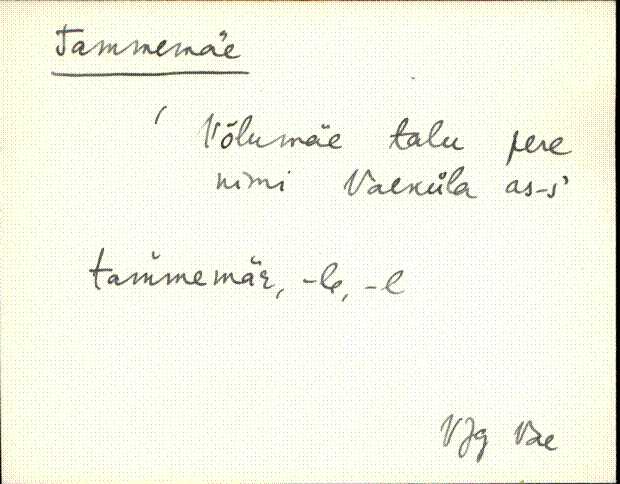 Tammemäe
' Võlumäe talu pere
nimi Vaeküla as-s'
tam̆memäe, -le, -l
VJg Vae